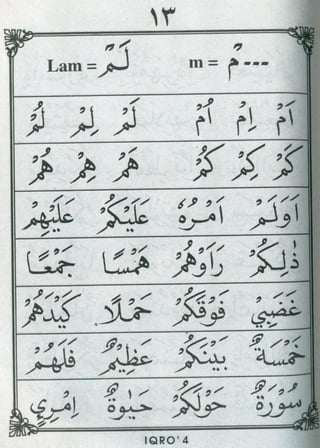 ١٣
Lam = لَمْ m = مْ ---
اَمْ اِمْ اُمْ لَمْ لِمْ لُمْ
كَمْ كِمْ كُمْ هَمْ هِمْ هُمْ
اَوَلَمْ اَمْرُهٗ عَلَيْكُمْ عَلَيْهِمْ
ذٰلِكُمْ رَاَوْهُمْ هَمْسًا جَمْعًا
غَضَبِيْ فَوْقَكُمْ حَمْلًا كَيْدَهُمْ
خَمْسَةٌ بَيْنَكُمْ عَظِيْمٌ فَلَهُمْ
سُوْرَةٌ حَوْلَكُمْ حَيٰوةٌ اِمْرِيْ
IQRO' 4